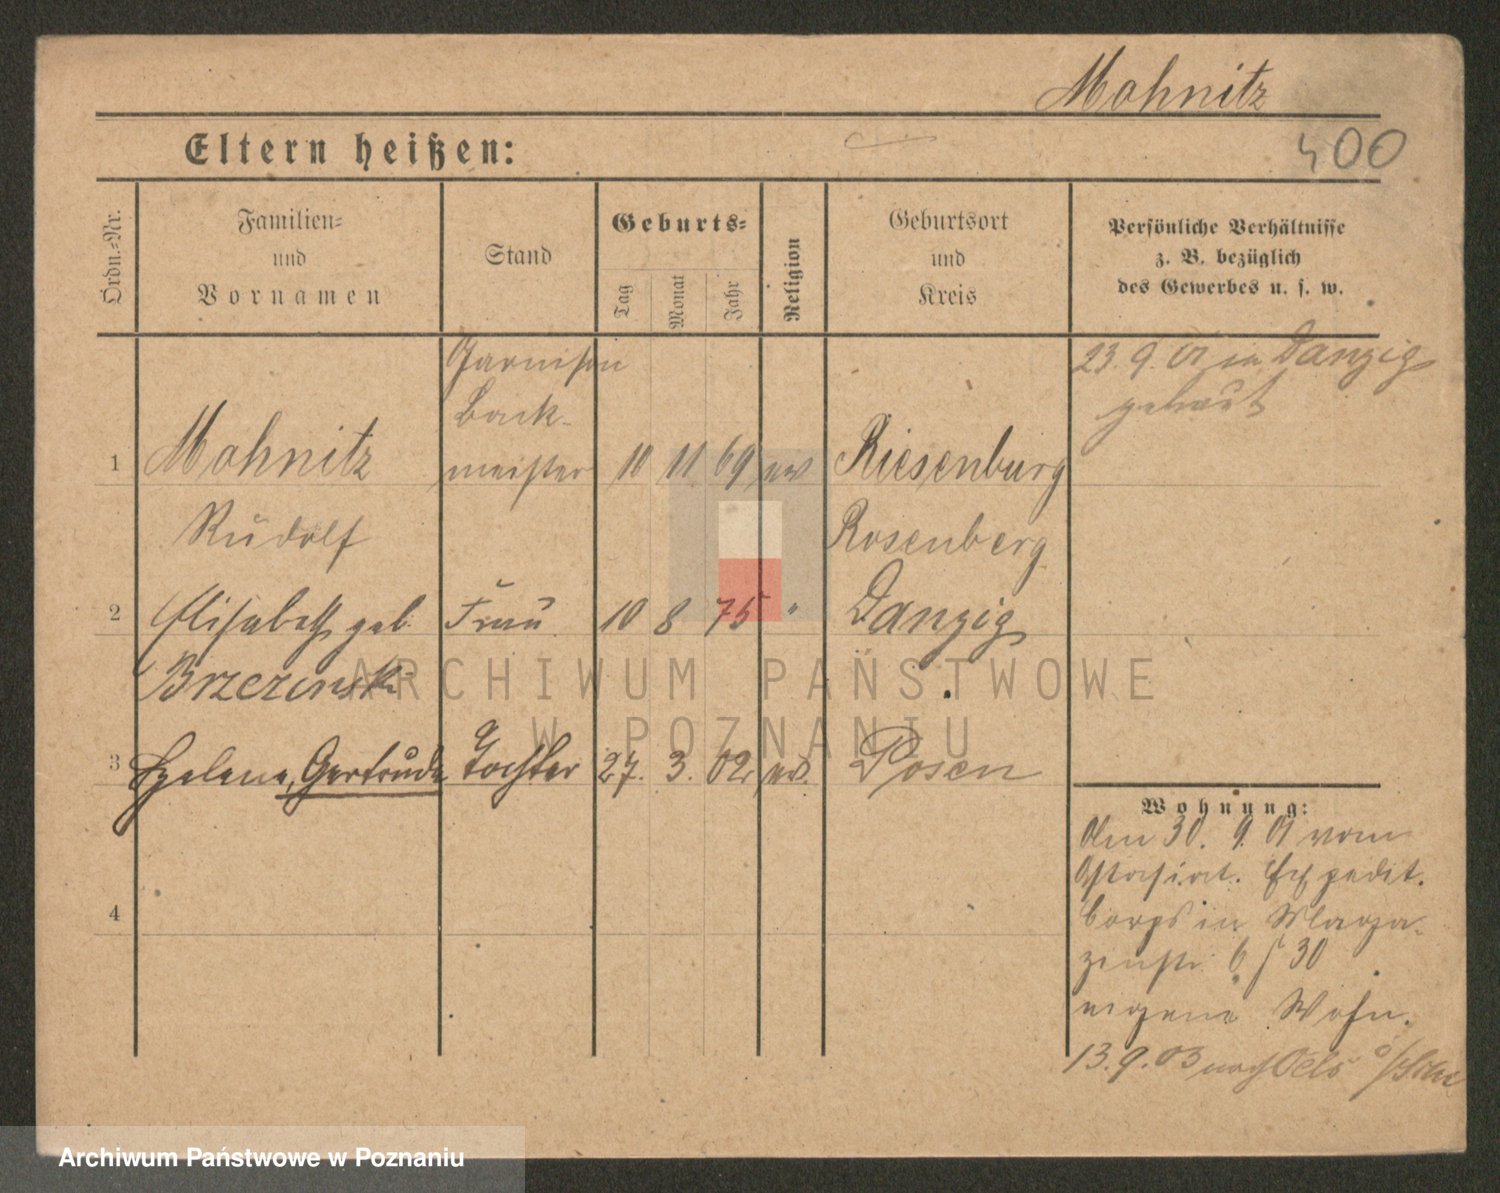 Mohnitz
Eltern heißen:
400
Ordn.=Nr.
Familien=
und
Vornamen
Stand
Geburts=
Tag
Monat
Jahr
Religion
Geburtsort
und
Kreis
Persönliche Verhältnisse
z. B. bezüglich
des Gewerbes u. s. w.
Garnison
Back-
1 Mohnitz meister 10 11 69 ev Riesenburg
23. 9. 01 in Danzig
getraut
Rudolf Rosenberg
2 Elisabeth geb. Frau 10 8 75 " Danzig
Brzezinski
3 Helene, Gertrude Tochter 27. 3. 02 ev. Posen
4
Wohnung:
Den 30. 9. 01 vom
Ostasiat. Expedit.
Corps in Maga-
zinstr. 6 30
eigene Wohn.
13. 9. 03 nach Oels
ARCHIWUM PAŃSTWOWE
W POZNANIU
Archiwum Państwowe w Poznaniu